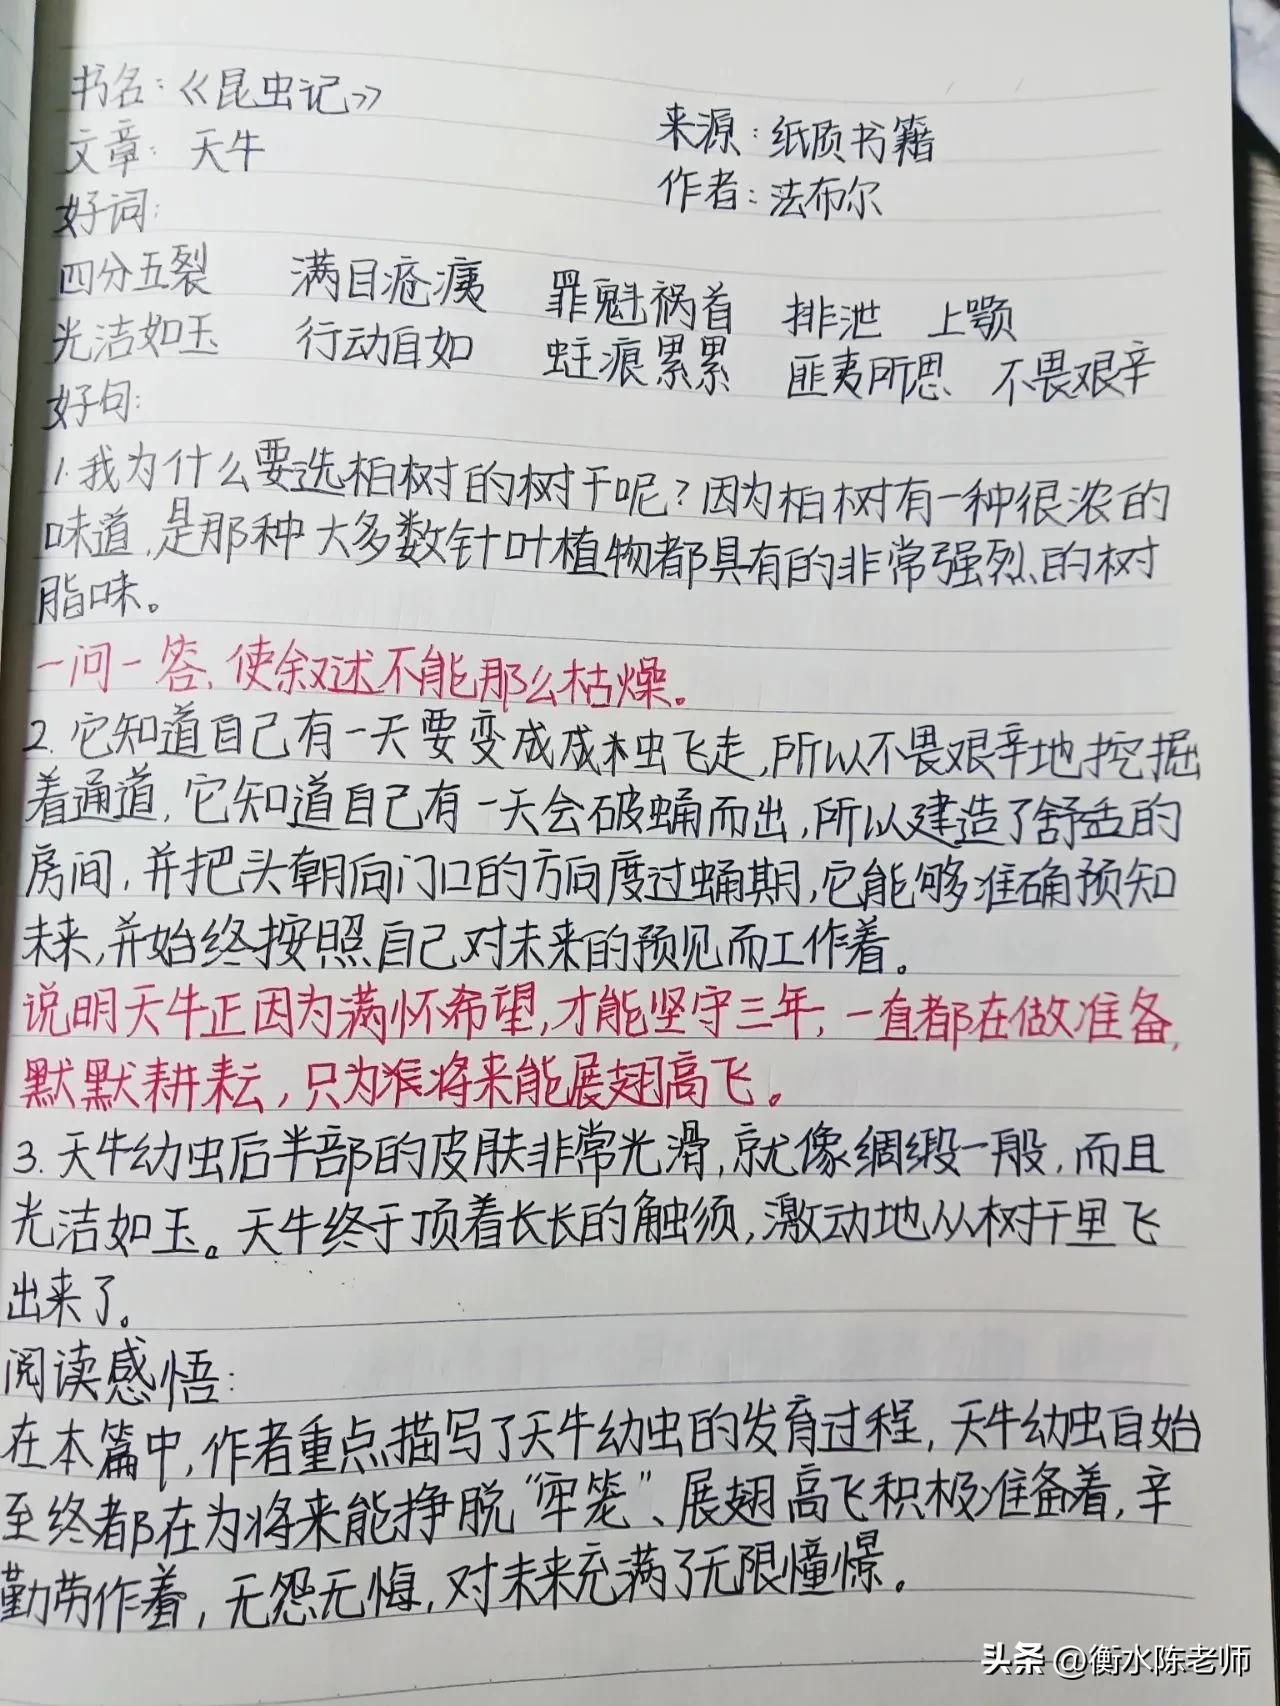 书名：《昆虫记》
来源：纸质书籍
文章：天牛
作者：法布尔
好词：
四分五裂 满目疮痍 罪魁祸首 排泄 上颚
光洁如玉 行动自如 蛀痕累累 匪夷所思 不畏艰辛
好句：
1.我为什么要选柏树的树干呢？因为柏树有一种很浓的
味道，是那种大多数针叶植物都具有的非常强烈的树
脂味。
一问一答，使叙述不能那么枯燥。
2.它知道自己有一天要变成成虫飞走，所以不畏艰辛地挖掘
着通道，它知道自己有一天会破蛹而出，所以建造了舒适的
房间，并把头朝向门口的方向度过蛹期，它能够准确预知
未来，并始终按照自己对未来的预见而工作着。
说明天牛正因为满怀希望，才能坚守三年，一直都在做准备，
默默耕耘，只为将来能展翅高飞。
3.天牛幼虫后半部的皮肤非常光滑，就像绸缎一般，而且
光洁如玉。天牛终于顶着长长的触须，激动地从树干里飞
出来了。
阅读感悟：
在本篇中，作者重点描写了天牛幼虫的发育过程，天牛幼虫自始
至终都在为将来能挣脱“牢笼”、展翅高飞积极准备着，辛
勤劳作着，无怨无悔，对未来充满了无限憧憬。
头条 @衡水陈老师